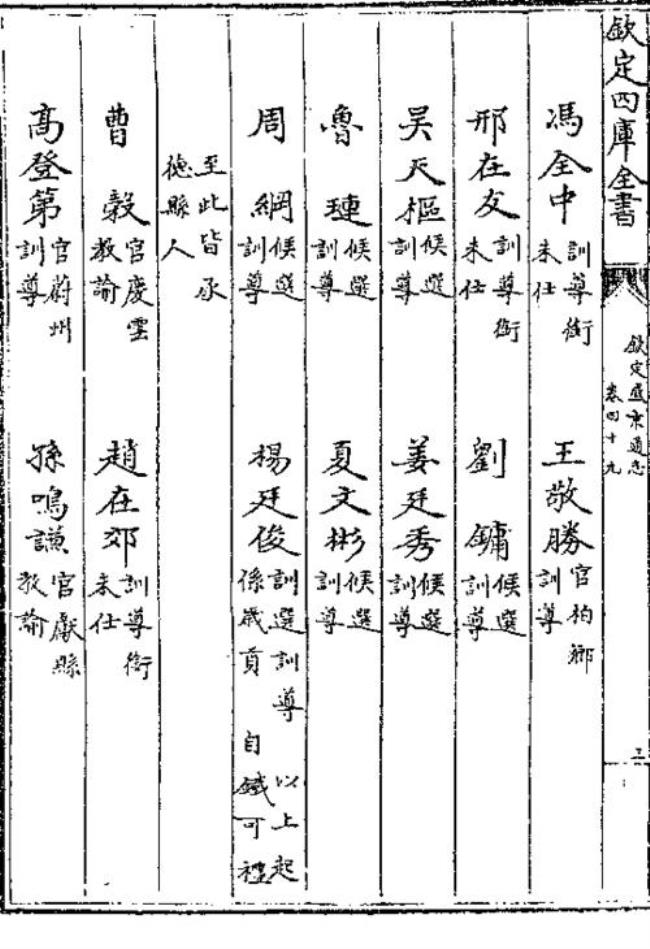 欽定四庫全書
欽定盛京通志
卷四十九
馮全中 訓導銜未仕 王敬勝 官柏鄉訓導
邢在友 訓導銜未仕 劉鏞 候選訓導
吳天樞 候選訓導 姜廷秀 候選訓導
魯璉 候選訓導 夏文彬 候選訓導
周綱 候選訓導 楊廷俊 訓選訓導係歲貢 以上起自鐵可禮
至此皆承德縣人
曹穀 官慶雲教諭 趙在郊 訓導銜未仕
高登第 官蔚州訓導 孫鳴謙 官獻縣教諭